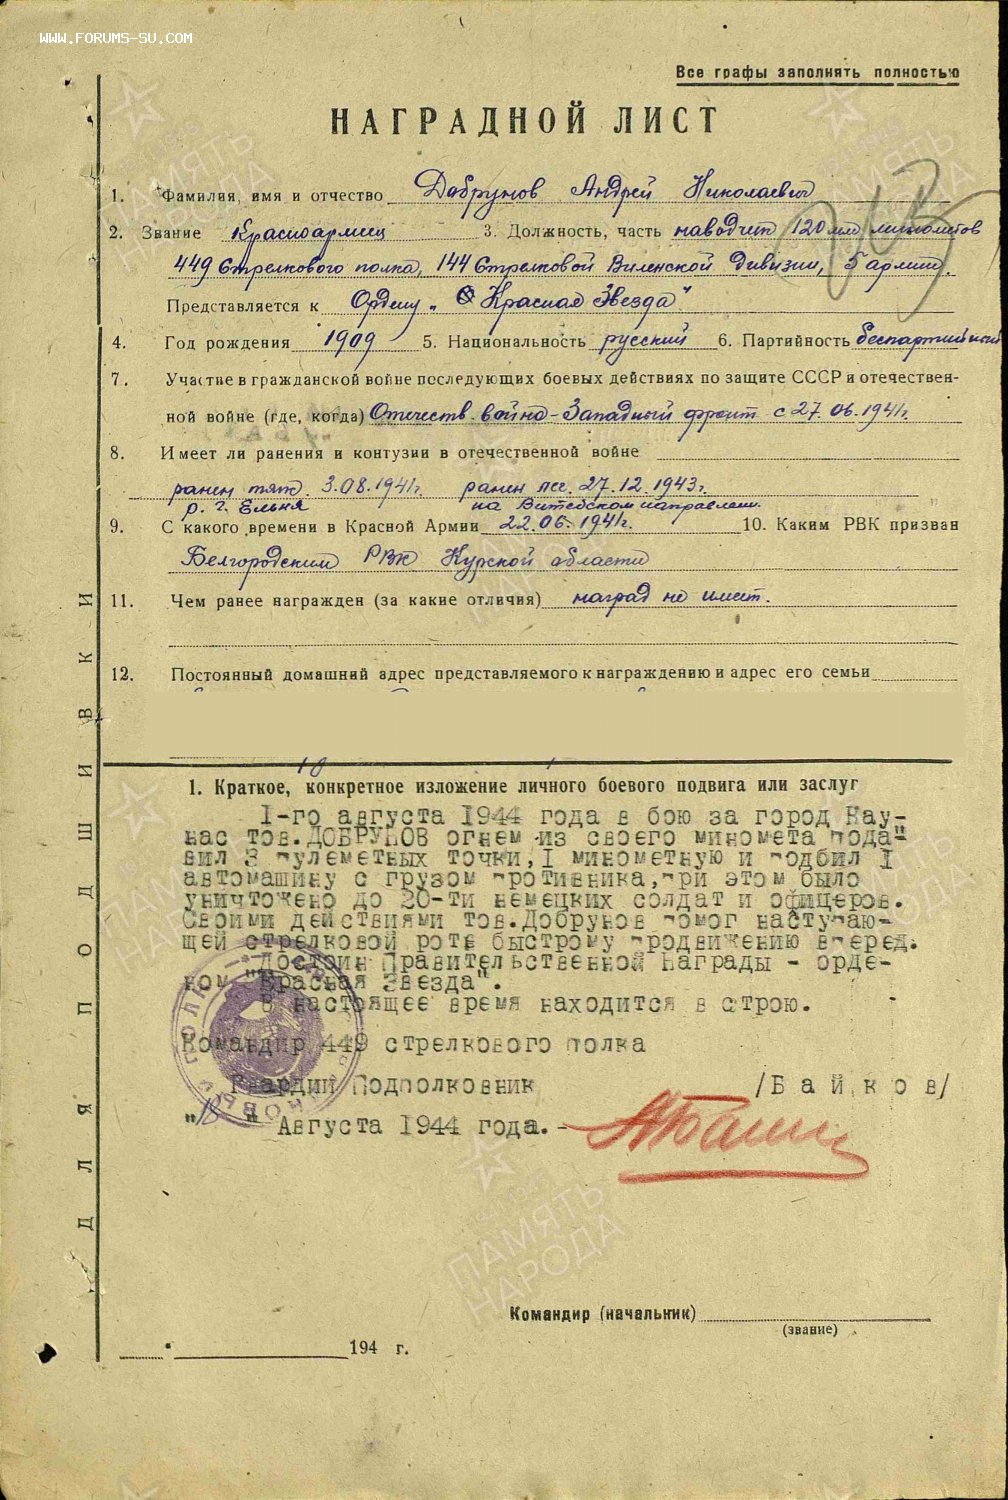 WWW.FORUMS-SU.COM
Все графы заполнять полностью
НАГРАДНОЙ ЛИСТ
1. Фамилия, имя и отчество Добрунов Андрей Николаевич
2. Звание Красноармеец 3. Должность, часть наводчик 120 мм минометов
449 Стрелкового полка, 144 Стрелковой Виленской дивизии, 5 армии.
Представляется к Ордену „Красная Звезда"
4. Год рождения 1909 5. Национальность русский 6. Партийность беспартийный
7. Участие в гражданской войне последующих боевых действиях по защите СССР и отечествен-
ной войне (где, когда) Отечеств. война - Западный фронт с 27.06.1941г.
8. Имеет ли ранения и контузии в отечественной войне
ранен тяж. 3.08.1941г. ранен лег. 27.12.1943г.
р. г. Ельня на Витебском направлении.
9. С какого времени в Красной Армии 22.06.1941г. 10. Каким РВК призван
Белгородским РВК Курской области
11. Чем ранее награжден (за какие отличия) наград не имеет.
12. Постоянный домашний адрес представляемого к награждению и адрес его семьи
1. Краткое, конкретное изложение личного боевого подвига или заслуг
1-го августа 1944 года в бою за город Кау-
нас тов. ДОБРУНОВ огнем из своего миномета пода-
вил 3 пулеметных точки, 1 минометную и подбил 1
автомашину с грузом противника, при этом было
уничтожено до 20-ти немецких солдат и офицеров.
Своими действиями тов. Добрунов помог наступаю-
щей стрелковой роте быстрому продвижению вперед.
Достоин Правительственной награды - орде-
ном "Красная Звезда".
В настоящее время находится в строю.
Командир 449 стрелкового полка
Гвардии Подполковник /Байков/
"18" Августа 1944 года. -
Командир (начальник)
(звание)
" " 194 г.
ДЛЯ ПОДШИВКИ
ПАМЯТЬ НАРОДА